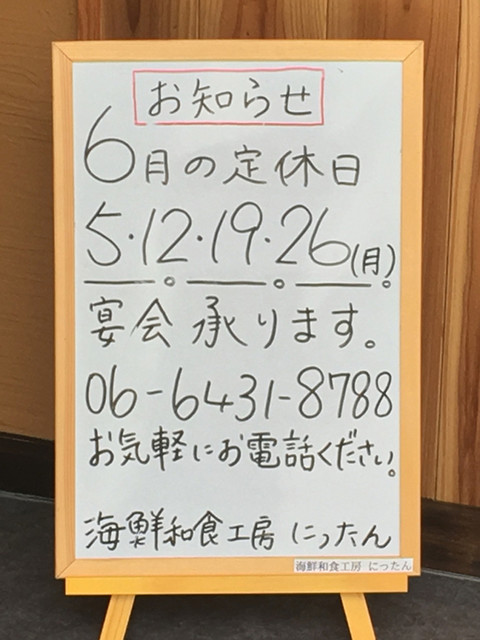 お知らせ
6月の定休日
5・12・19・26(月)
宴会 承ります。
06-6431-8788
お気軽にお電話ください。
海鮮和食工房 にったん
海鮮和食工房 にったん